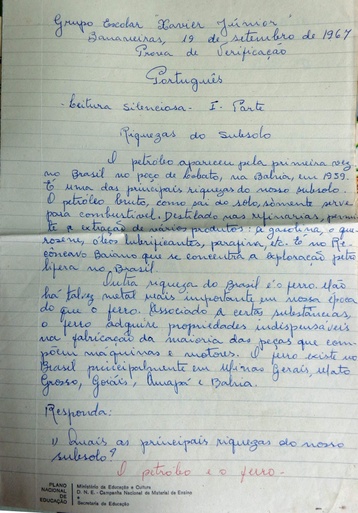 Grupo Escolar "Xavier Júnior"
Bananeiras, 19 de setembro de 1967
Prova de Verificação
Português
- Leitura Silenciosa - I - Parte
Riquezas do Subsolo
O petróleo apareceu pela primeira vez
no Brasil no poço de Lobato, na Bahia, em 1939.
É uma das principais riquezas do nosso subsolo.
O petróleo bruto, como sai do solo, sòmente serve
para combustível. Destilado nas refinarias, permi-
te a extração de vários produtos: a gasolina, o que-
rosene, óleos lubrificantes, parafina, etc. É no Re-
côncavo Baiano que se concentra a exploração petro
lífera no Brasil.
Outra riqueza do Brasil é o ferro. Não
há talvez metal mais importante em nossa época
do que o ferro. Associado a certas substâncias,
o ferro adquire propriedades indispensáveis
na fabricação da maioria das peças que com-
põem máquinas e motores. O ferro existe no
Brasil principalmente em Minas Gerais, Mato
Grosso, Goiáis, Amapá e Bahia.
Responda:
1) Quais as principais riquezas do nosso
subsolo?
O petróleo e o ferro.
PLANO NACIONAL DE EDUCAÇÃO
Ministério da Educação e Cultura
D. N. E. - Campanha Nacional de Material de Ensino
e
Secretaria de Educação